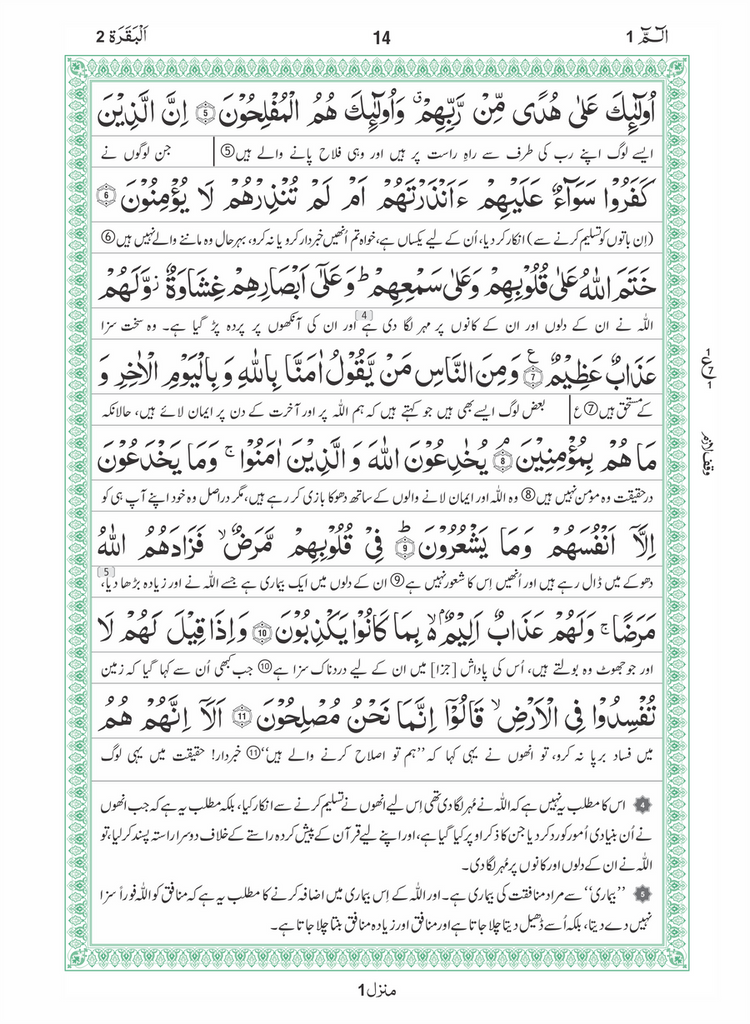 الٓمّٓ 1
14
اَلْبَقَرَة 2
اُولٰٓئِكَ عَلٰى هُدًى مِّنْ رَّبِّهِمْ ۗ وَاُولٰٓئِكَ هُمُ الْمُفْلِحُوْنَ ۝5 اِنَّ الَّذِيْنَ
ایسے لوگ اپنے رب کی طرف سے راہِ راست پر ہیں اور وہی فلاح پانے والے ہیں⑤ جن لوگوں نے
كَفَرُوْا سَوَآءٌ عَلَيْهِمْ ءَاَنْذَرْتَهُمْ اَمْ لَمْ تُنْذِرْهُمْ لَا يُؤْمِنُوْنَ ۝6
(اِن باتوں کو تسلیم کرنے سے) انکار کر دیا، اُن کے لیے یکساں ہے، خواہ تم انھیں خبردار کرو یا نہ کرو، بہرحال وہ ماننے والے نہیں ہیں⑥
خَتَمَ اللّٰهُ عَلٰى قُلُوْبِهِمْ وَعَلٰى سَمْعِهِمْ ؕ وَعَلٰٓى اَبْصَارِهِمْ غِشَاوَةٌ ز وَّلَهُمْ
اللہ نے ان کے دلوں اور ان کے کانوں پر مہر لگا دی ہے 4 اور ان کی آنکھوں پر پردہ پڑ گیا ہے۔ وہ سخت سزا
عَذَابٌ عَظِيْمٌ ۝7 ع وَمِنَ النَّاسِ مَنْ يَّقُوْلُ اٰمَنَّا بِاللّٰهِ وَ بِالْيَوْمِ الْاٰخِرِ وَ
1 ع 7 1
کے مستحق ہیں⑦ ع بعض لوگ ایسے بھی ہیں جو کہتے ہیں کہ ہم اللہ پر اور آخرت کے دن پر ایمان لائے ہیں، حالانکہ
وقف لازم
مَا هُمْ بِمُؤْمِنِيْنَ ۝8 م يُخٰدِعُوْنَ اللّٰهَ وَ الَّذِيْنَ اٰمَنُوْا ۚ وَمَا يَخْدَعُوْنَ
درحقیقت وہ مومن نہیں ہیں⑧ وہ اللہ اور ایمان لانے والوں کے ساتھ دھوکا بازی کر رہے ہیں، مگر دراصل وہ خود اپنے آپ ہی کو
اِلَّاۤ اَنْفُسَهُمْ وَمَا يَشْعُرُوْنَ ۝9 ؕ فِيْ قُلُوْبِهِمْ مَّرَضٌ ۙ فَزَادَهُمُ اللّٰهُ
دھوکے میں ڈال رہے ہیں اور اُنھیں اِس کا شعور نہیں ہے⑨ ان کے دلوں میں ایک بیماری ہے جسے اللہ نے اور زیادہ بڑھا دیا، 5
مَرَضًا ۚ وَلَهُمْ عَذَابٌ اَلِيْمٌۢ ۙ بِمَا كَانُوْا يَكْذِبُوْنَ ۝10 وَاِذَا قِيْلَ لَهُمْ لَا
اور جو جھوٹ وہ بولتے ہیں، اُس کی پاداش [جزا] میں ان کے لیے دردناک سزا ہے⑩ جب کبھی اُن سے کہا گیا کہ زمین
تُفْسِدُوْا فِي الْاَرْضِ ۙ قَالُوْٓا اِنَّمَا نَحْنُ مُصْلِحُوْنَ ۝11 اَلَآ اِنَّهُمْ هُمُ
میں فساد برپا نہ کرو، تو انھوں نے یہی کہا کہ ’’ہم تو اصلاح کرنے والے ہیں‘‘⑪ خبردار! حقیقت میں یہی لوگ
4 اس کا مطلب یہ نہیں ہے کہ اللہ نے مُہر لگا دی تھی اِس لیے اُنھوں نے تسلیم کرنے سے انکار کیا، بلکہ مطلب یہ ہے کہ جب انھوں
نے اُن بنیادی اُمور کو رد کر دیا جن کا ذکر اوپر کیا گیا ہے، اور اپنے لیے قرآن کے پیش کردہ راستے کے خلاف دوسرا راستہ پسند کر لیا، تو
اللہ نے ان کے دلوں اور کانوں پر مُہر لگا دی۔
5 ’’بیماری‘‘ سے مراد منافقت کی بیماری ہے۔ اور اللہ کے اِس بیماری میں اضافہ کرنے کا مطلب یہ ہے کہ منافق کو اللہ فوراً سزا
نہیں دے دیتا، بلکہ اُسے ڈھیل دیتا چلا جاتا ہے اور منافق اور زیادہ منافق بنتا چلا جاتا ہے۔
منزل 1